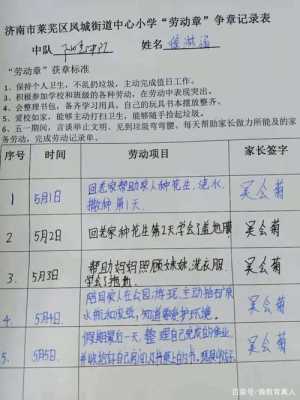 济南市莱芜区凤城街道中心小学“劳动章”争章记录表
中队
姓名
“劳动章”获章标准
1、保持个人卫生，不乱扔垃圾，主动完成值日工作。
2、积极参加学校和班级的各种劳动，在劳动中表现突出。
3、会整理书包，备齐学习用具，自己的玩具书本摆放整齐。
4、爱校如家，能够主动打扫卫生，能够随手捡起垃圾。
5、五一期间，言谈举止文明，见到垃圾弯弯腰，每天帮助家长做力所能及的家
务劳动，完成劳动记录单。
序号 时间 劳动项目 家长签字
1 5月1日 回老家帮助家人种花生，浇水，
撒种第1天 吴会菊
2 5月2日 回老家种花生第2天，学会了盖地膜 吴会菊
3 5月3日 帮助妈妈照顾妹妹，洗衣服，
学会了拖地 吴会菊
4 5月4日 陪同家人在公园游玩，主动捡起
水瓶和垃圾，知道爱护环境。 吴会菊
5 5月5日 假期最后一天，整理自己完成的作业
吴会菊
百家号/